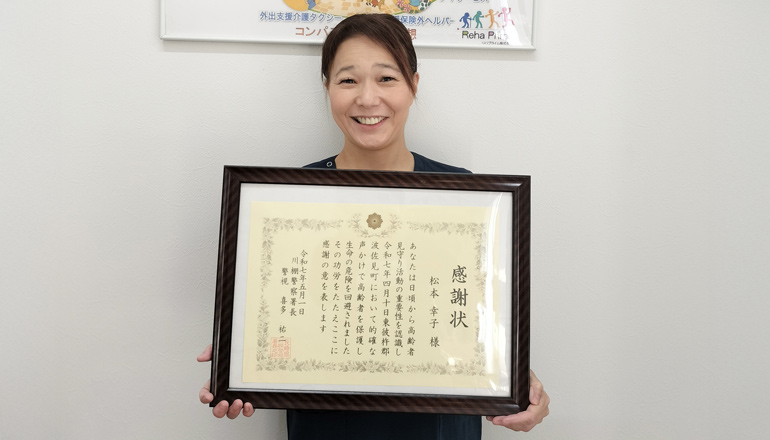 外出支援介護タクシー
保険外ヘルパー
コンパ
想
Reha Pr
感謝状
松本 幸子 様
あなたは日頃から高齢者
見守り活動の重要性を認識し
令和七年四月十日東彼杵郡
波佐見町において的確な
声かけで高齢者を保護し
生命の危険を回避されました
その功労をたたえここに
感謝の意を表します
令和七年五月一日
川棚警察署長
警視 喜多 祐二